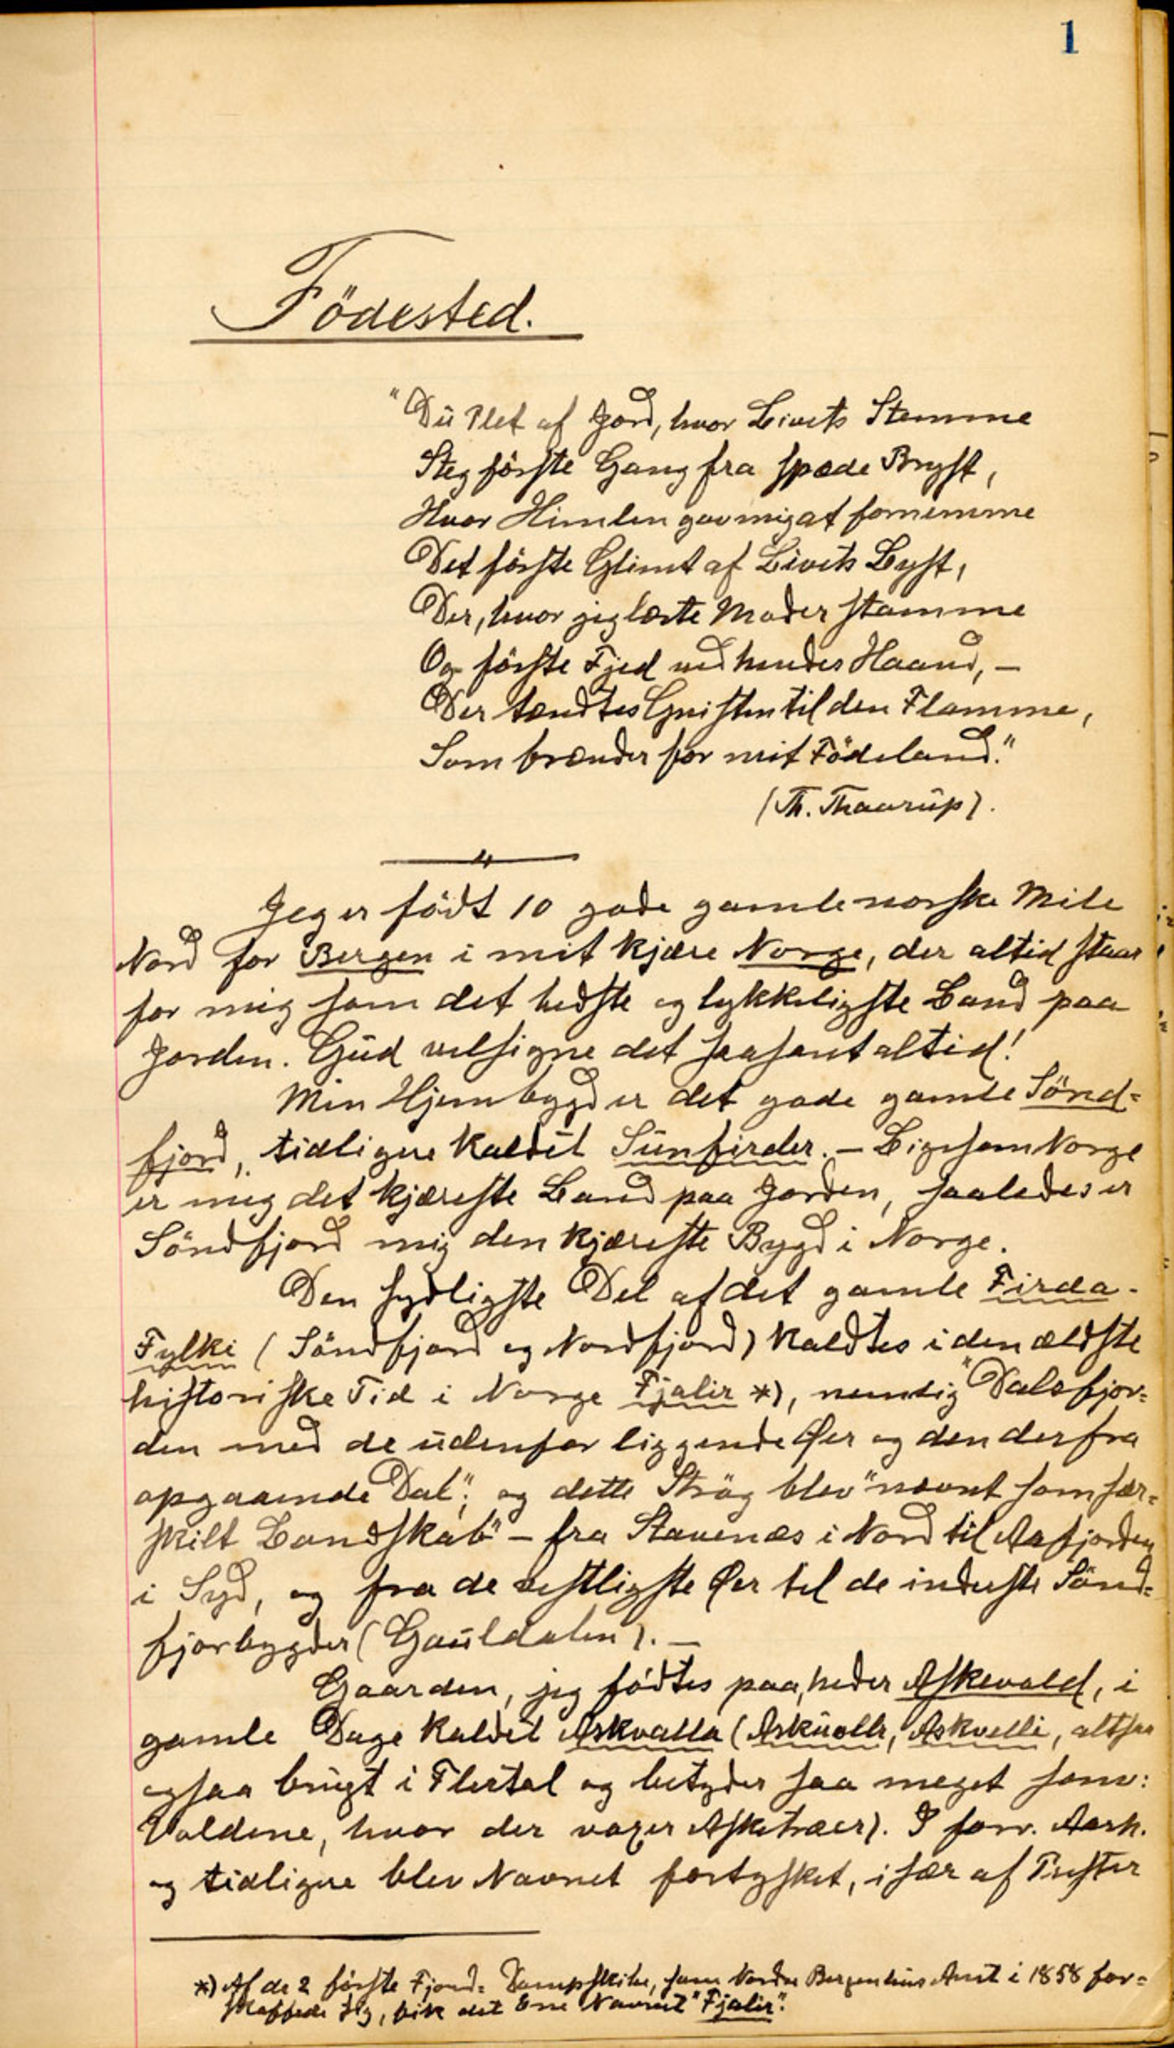 1
Födested.
"Du Plet af Jord, hvor Livets Stemme
Steg förste Gang fra spæde Bryst,
Hvor Himlen gav mig at fornemme
Det förste Glimt af Livets Lyst,
Der, hvor jeg lærte Moder stamme
Og förste Fjed ved hendes Haand, –
Der tændtes Gnisten til den Flamme,
Som brænder for mit Födeland."
(Th. Thaarup).
Jeg er födt 10 gode gamle norske Mile
Nord for Bergen i mit kjære Norge, der altid staar
for mig som det bedste og lykkeligste Land paa
Jorden. Gud velsigne det saasant altid!
Min Hjembygd er det gode gamle Sönd-
fjord, tidligere kaldet Sunfirder. – Ligesom Norge
er mig det kjæreste Land paa Jorden, saaledes er
Söndfjord mig den kjæreste Bygd i Norge.
Den sydligste Del af det gamle Firda-
Fylki (Söndfjord og Nordfjord) kaldtes i den ældste
historiske Tid i Norge Fjalir *), nemlig "Dalsfjor-
den med de udenfor liggende Øer og den derfra
opgaaende Dal", og dette Strög blev "nævnt som sær-
skilt Landskab" – fra Stavenæs i Nord til Aafjorden
i Syd, og fra de vestligste Øer til de inderste Sönd-
fjorbygder (Gauldalen). –
Gaarden, jeg födtes paa, heder Askevold, i
gamle Dage kaldet Askvalla (Askuollr, Askvelli, altsaa
ogsaa brugt i Flertal og betyder saa meget som:
Voldene, hvor der voxer Asketræer). I forr. Aarh.
og tidligere blev Navnet fortysket, især af Prester
*) Af de 2 förste Fjord-Dampskibe, som Nordre Bergenhus Amt i 1858 for-
skaffede sig, fik det Ene Navnet "Fjalir".